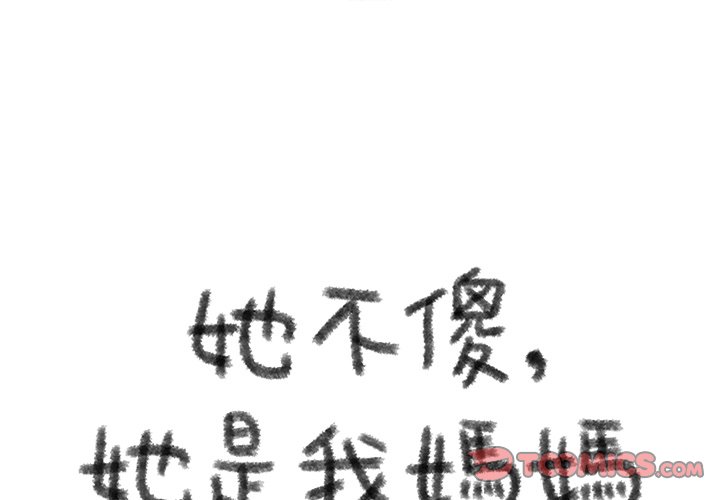 她不傻,
她是我媽媽
TCOMICS.COM